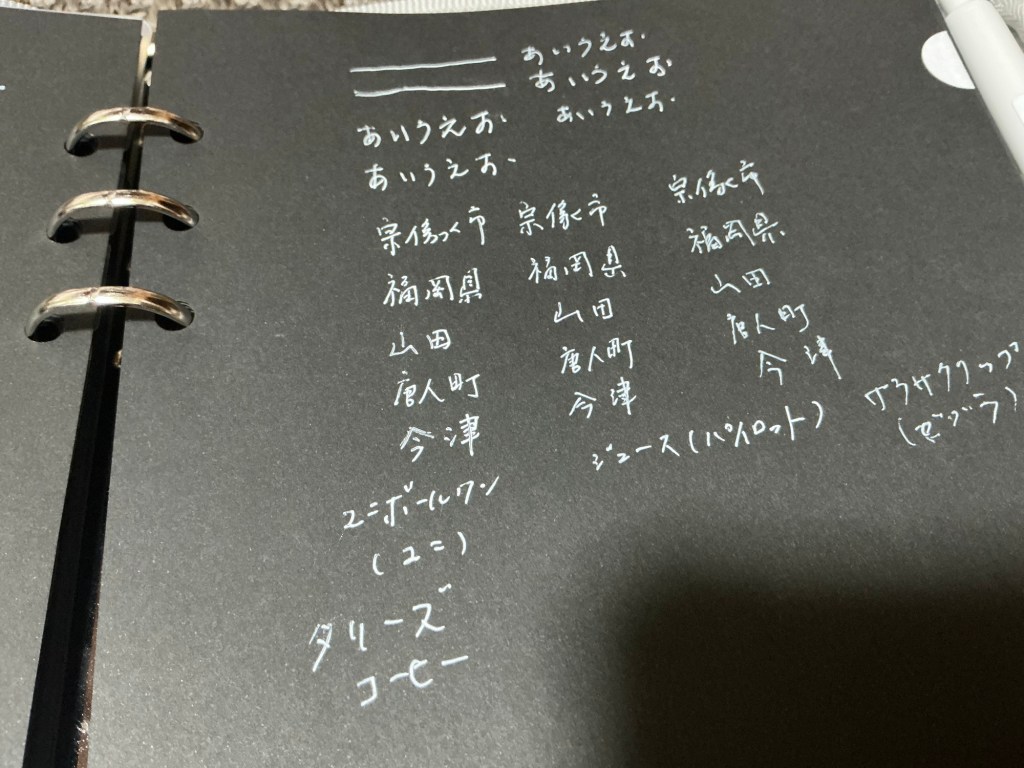 あいうえお.
あいうえお
あいうえお.
あいうえお.
あいうえお.
宗像市
福岡県
山田
唐人町
今津
ユニボールワン
(ユニ)
宗像市
福岡県
山田
唐人町
今津
ジュース(パイロット)
宗像市
福岡県
山田
唐人町
今津
サラサクリップ
(ゼブラ)
タリーズ
コーヒー